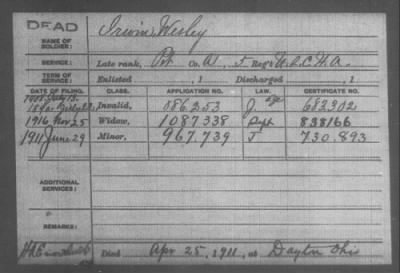 DEAD
NAME OF SOLDIER: Irwin Wesley
SERVICE: Late rank, Pvt Co. A, 5 Reg't U.S.C.H.A.
TERM OF SERVICE: Enlisted , 1 Discharged , 1
DATE OF FILING. CLASS. APPLICATION NO. LAW. CERTIFICATE NO.
Invalid, 086253 J. 682902
1916 Nov 25 Widow, 1087338 Sept 838166
1911 June 29 Minor, 967.739 J 730.893
ADDITIONAL SERVICES:
REMARKS:
Died Apr 25, 1911, at Dayton Ohio